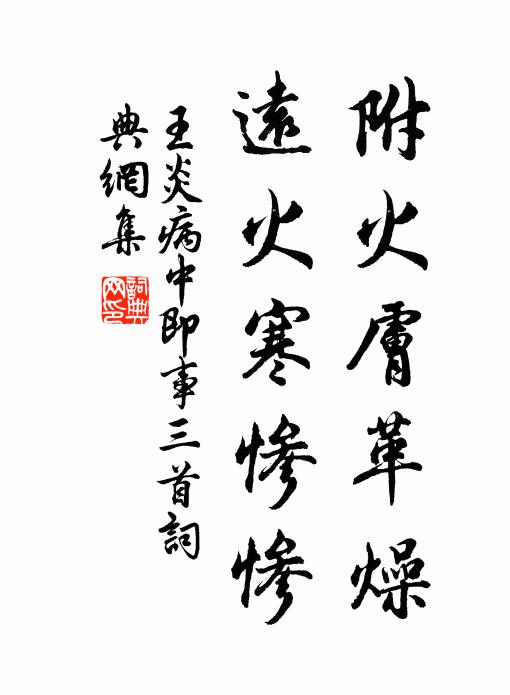 附火膚革燥
遠火寒慘慘
王炎病中即事三首詞
典網集
詞典网印